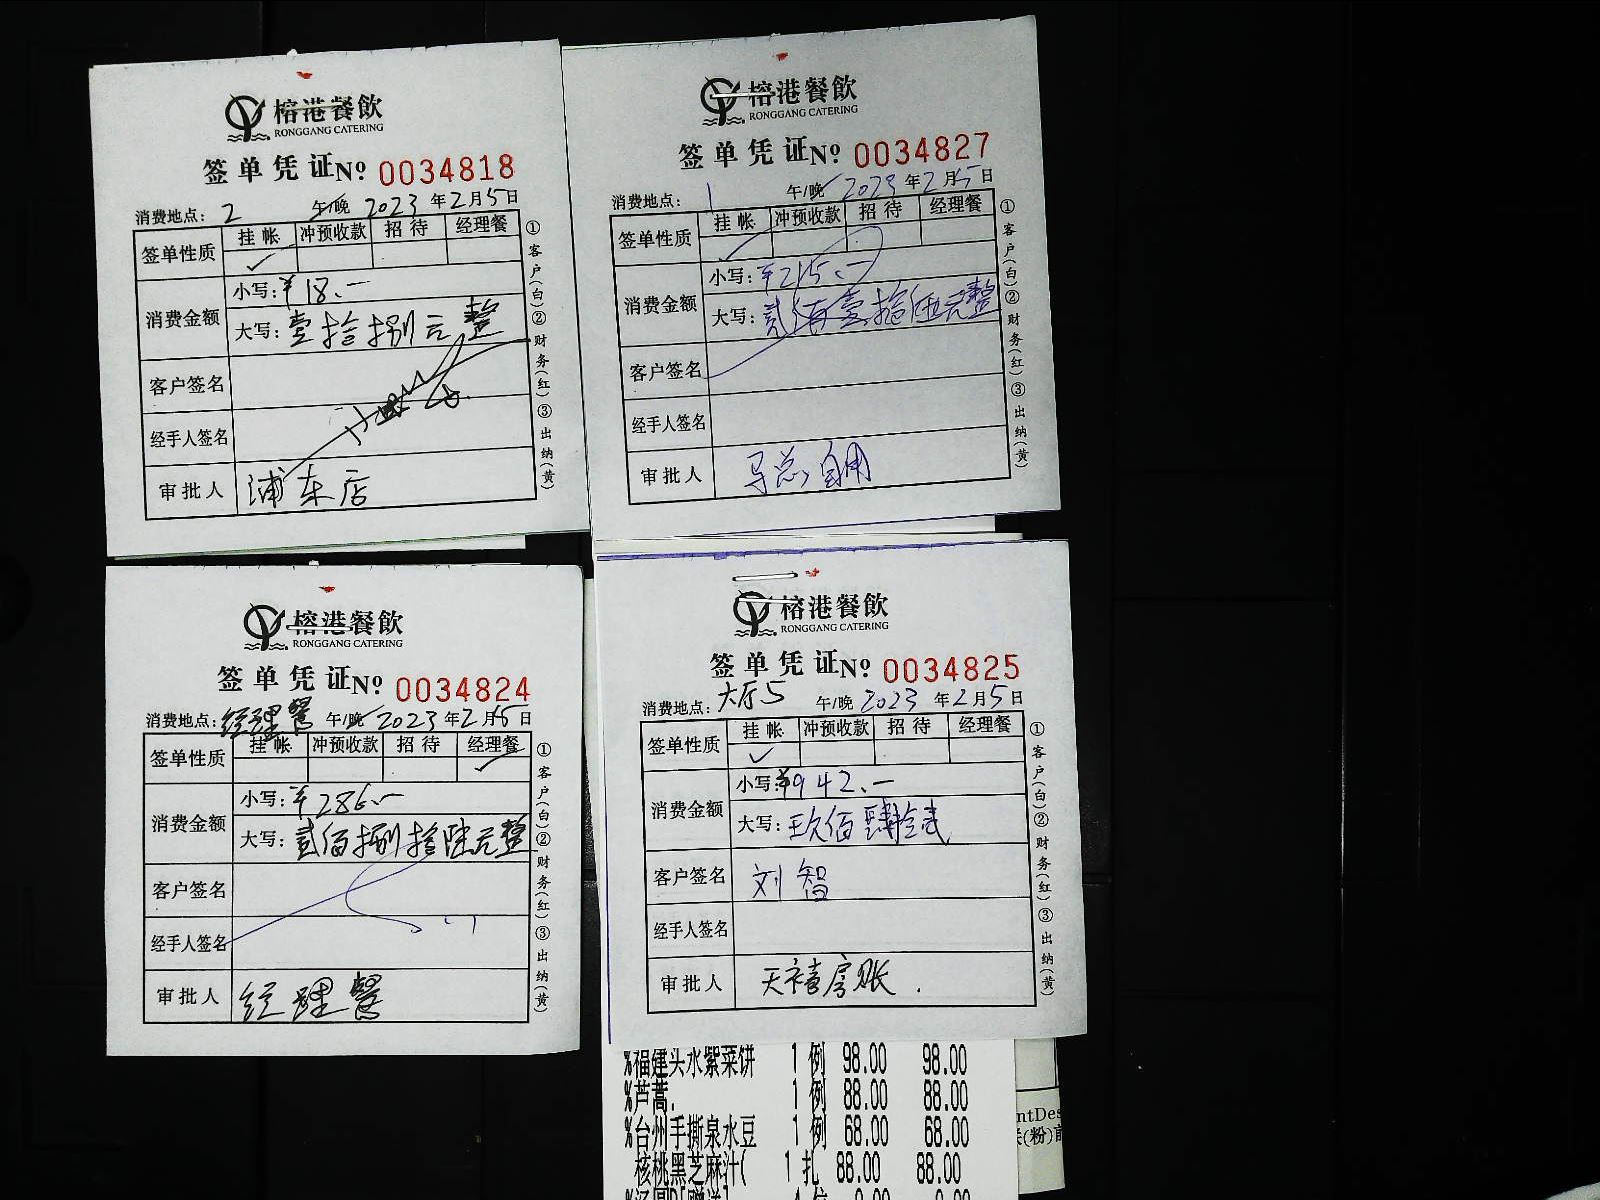 榕港餐飲
RONGGANG CATERING
签单凭证No 0034818
消费地点: 2 午/晚 2023 年 2 月 5 日
签单性质 挂帐 冲预收款 招待 经理餐
✓
消费金额
小写: ¥18.—
大写: 壹拾捌元整
客户签名
经手人签名
审批人 浦东店
①客户(白)②财务(红)③出纳(黄)
榕港餐飲
RONGGANG CATERING
签单凭证No 0034827
消费地点: 1 午/晚 2023 年 2 月 5 日
签单性质 挂帐 冲预收款 招待 经理餐
✓
消费金额
小写: ¥215.—
大写: 贰佰壹拾伍元整
客户签名
经手人签名
审批人 总 自用
①客户(白)②财务(红)③出纳(黄)
榕港餐飲
RONGGANG CATERING
签单凭证No 0034824
消费地点: 经理餐 午/晚 2023 年 2 月 5 日
签单性质 挂帐 冲预收款 招待 经理餐
✓
消费金额
小写: ¥286.—
大写: 贰佰捌拾陆元整
客户签名
经手人签名
审批人 经理餐
①客户(白)②财务(红)③出纳(黄)
榕港餐飲
RONGGANG CATERING
签单凭证No 0034825
消费地点: 大厅5 午/晚 2023 年 2 月 5 日
签单性质 挂帐 冲预收款 招待 经理餐
✓
消费金额
小写: ¥942.—
大写: 玖佰肆拾贰
客户签名 刘智
经手人签名
审批人 天禧房账.
①客户(白)②财务(红)③出纳(黄)
%福建头水紫菜饼 1 例 98.00 98.00
%芦蒿. 1 例 88.00 88.00
%台州手撕泉水豆 1 例 68.00 68.00
核桃黑芝麻汁( 1 扎 88.00 88.00
ntDes
(粉)